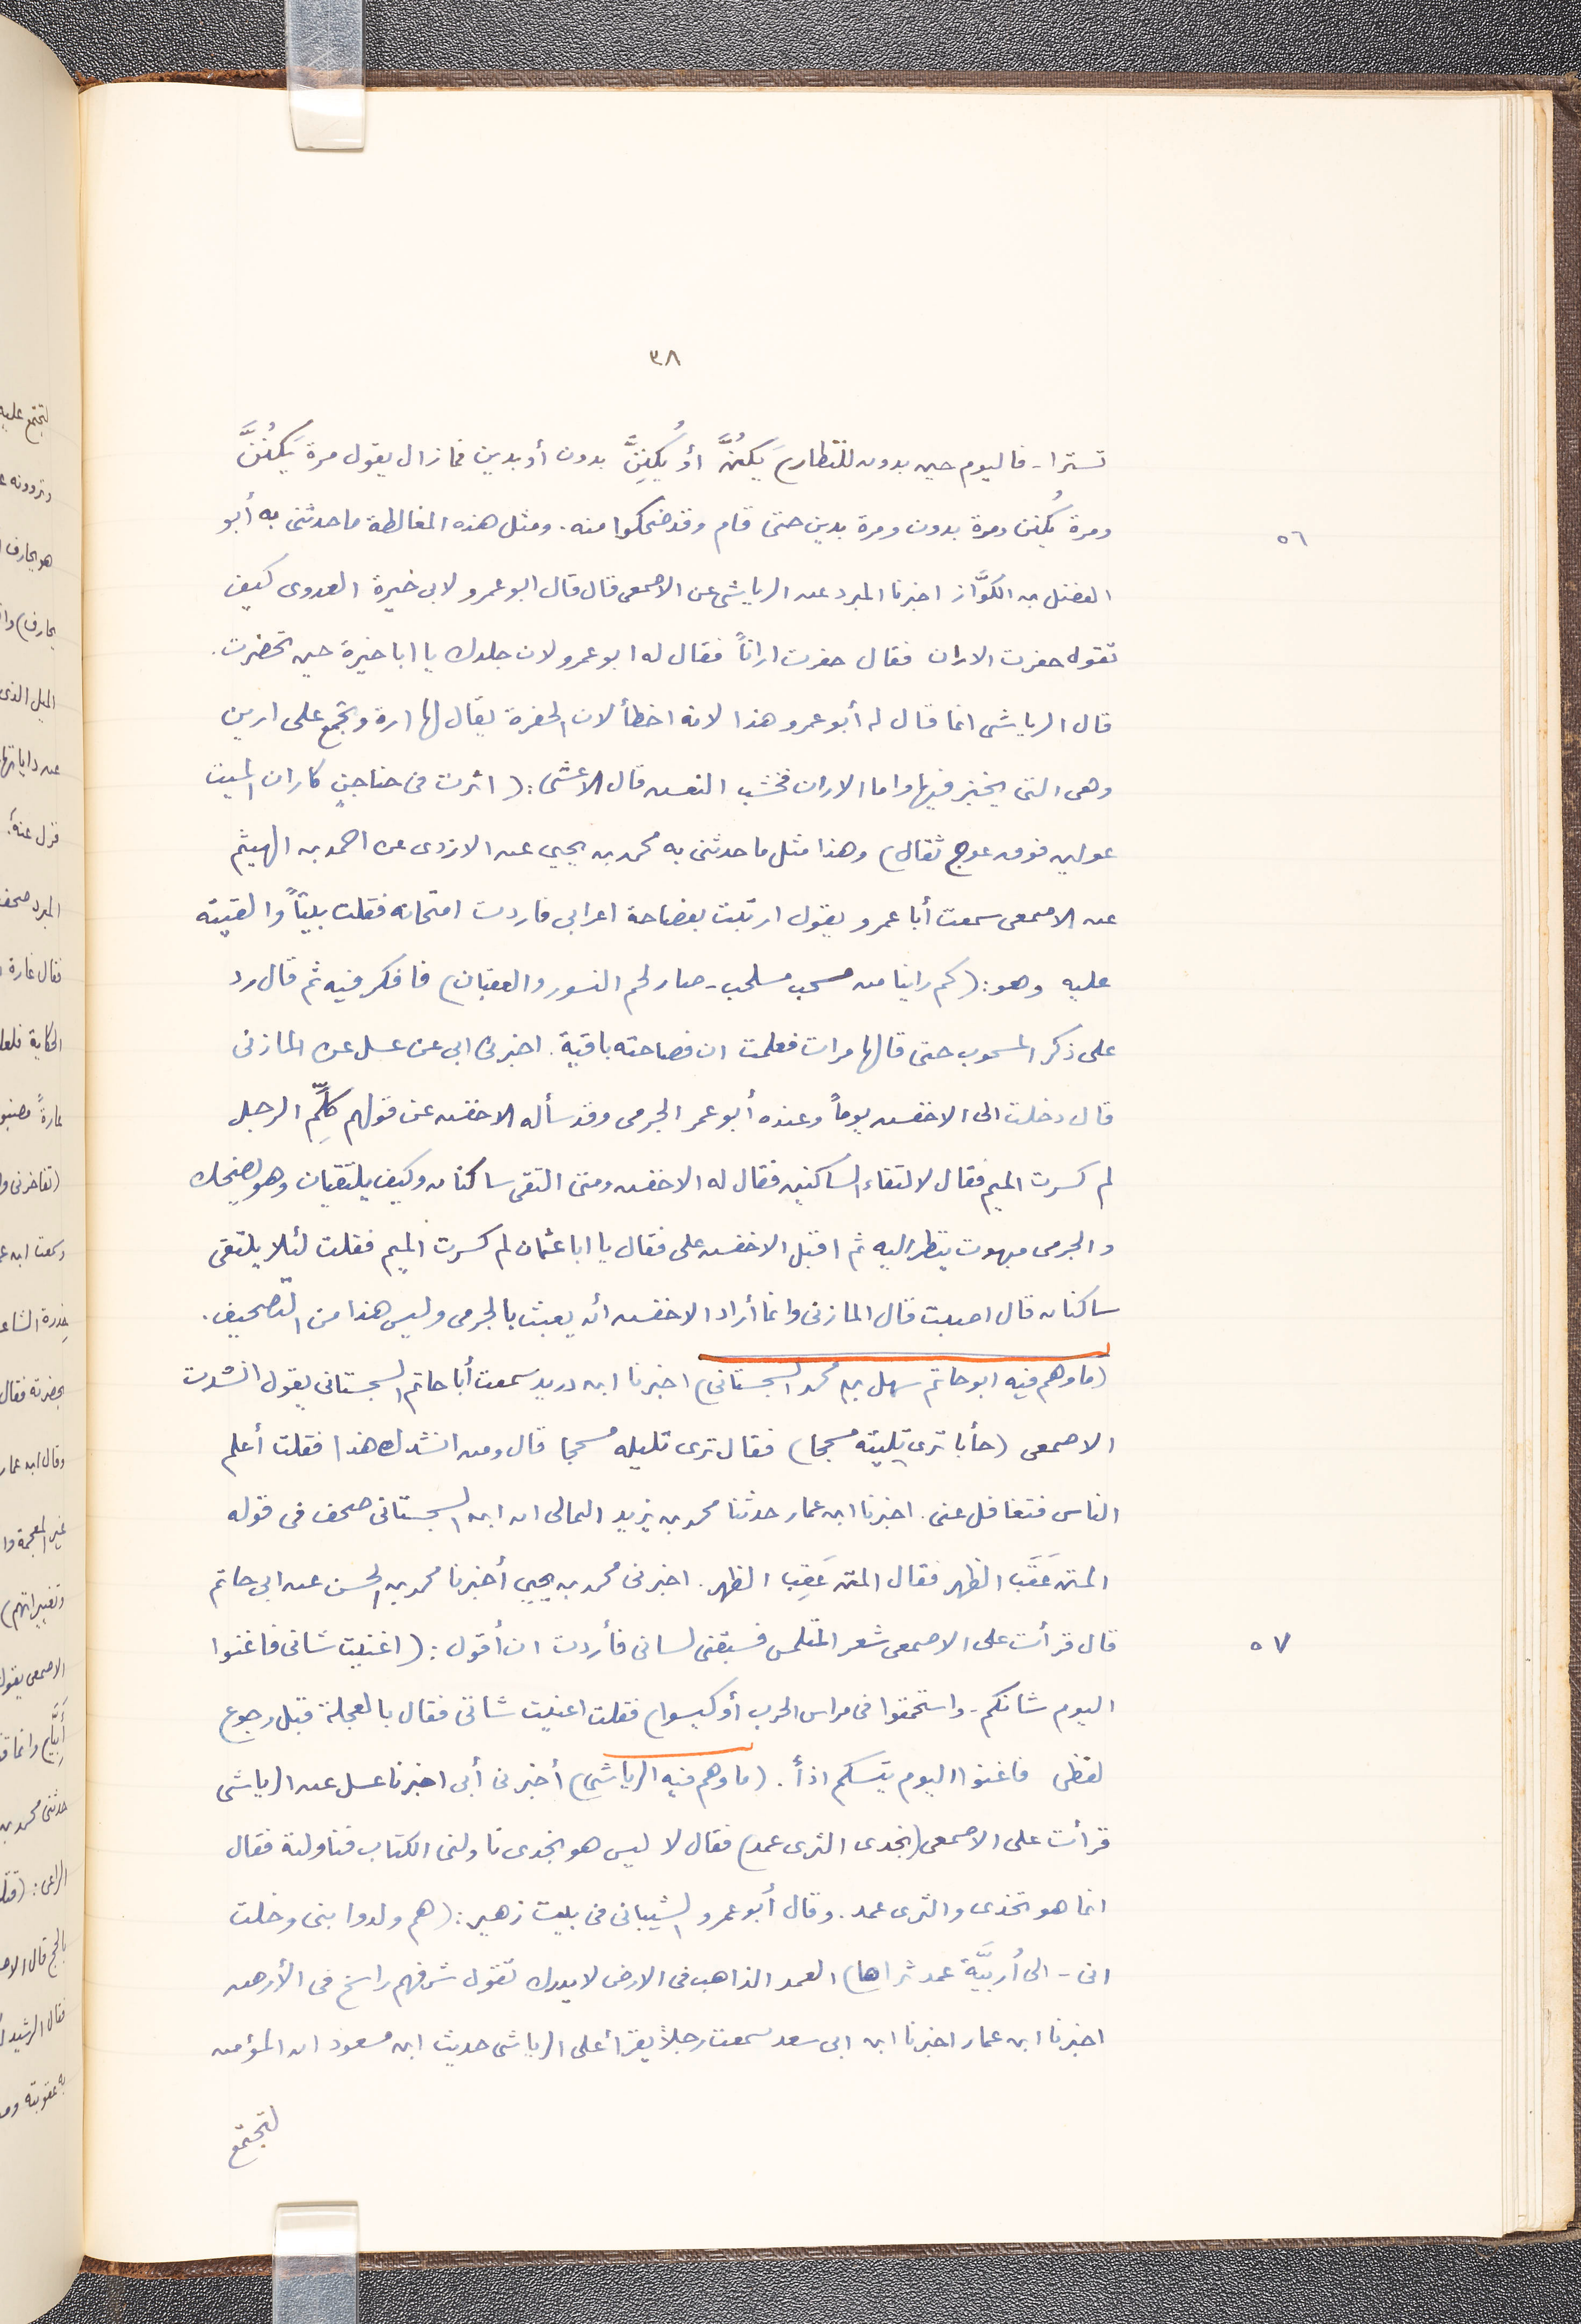 ٣٨
تسترا - فاليوم حين بدون للنظار) يَكنُنَّ أو يُكنِنَّ بدون أو بدين فما زال يقول مرة يَكنُنَّ
ومرة يُكنن ومرة بدون ومرة بدين حتى قام وقد ضحكوا منه. ومثل هذه المغالطة ما حدثنى به أبو
٥٦
الفضل بن الكوَّاز اخبرنا المبرد عن الرياشى عن الاصمعى قال قال ابو عمرو لابى خيرة العدوى كيف
تقول حفرت الاران فقال حفرت اراناً فقال له ابو عمرو لان جلدك يا ابا خيرة حين تحضرت.
قال الرياشى انما قال له أبو عمرو هذا لانه اخطأ لان الحفرة يقال لها ارة وتجمع على ارين
وهى التى يختبز فيها واما الاران فخشب النعش قال الاعشى: ( اثرت فى جناجنٍ كاران الميت
عولين فوق عوج ثقال) وهذا مثل ما حدثنى به محمد بن يحيى عن الازدى عن احمد بن الهيثم
عن الاصمعى سمعت أبا عمرو يقول ارتبت بفصاحة اعرابى فاردت امتحانه فقلت بيتاً والقيته
عليه وهو: (كم راينا من مسحب مسلحب - صار لحم النسور والعقبان) فافكر فيه ثم قال رد
على ذكر المسحوب حتى قالها مرات فعلمت ان فصاحته باقية. اخبرنى ابى عن عسل عن المازنى
قال دخلت الى الاخفش يوماً وعنده أبو عمر الجرمى وقد سأله الاخفش عن قولهم كلّمِ الرجل
لم كسرت الميم فقال لالتقاء الساكنين فقال له الاخفش ومتى التقى ساكنان وكيف يلتقيان وهو يضحك
والجرمى مبهوت ينظر اليه ثم اقبل الاخفش على فقال يا ابا عثمان لم كسرت الميم فقلت لئلا يلتقى
ساكنان قال اصبت قال المازنى وانما أراد الاخفش أن يعبث بالجرمى وليس هذا من التصحيف.
(ما وهم فيه ابو حاتم سهل بن محمد السجستانى) اخبرنا ابن دريد سمعت أبا حاتم السجستانى يقول انشدت
الاصمعى (جأبا ترى تليته مسحجا) فقال ترى تليله مسحجا قال ومن انشدك هذا فقلت أعلم
الناس فتغافل عنى. اخبرنا ابن عمار حدثنا محمد بن يزيد الثمالى ان ابن السجستانى صحف فى قوله
المتن عَقَب الظهر فقال المتن عَقِب الظهر. اخبرنى محمد بن يحيى أخبرنا محمد بن الحسن عن ابى حاتم
قال قرأت على الاصمعى شعر المتلمس فسبقنى لسانى فأردت ان أقول: ( اغنيت شانى فاغنوا
٥٧
اليوم شانكم - واستحمقوا فى مراس الحرب أو كيسوا) فقلت اغنيت شاتى فقال بالعجلة قبل رجوع
لفظى فاغنوا اليوم تيسكم اذاً. (ما وهم فيه الرياشى) أخبرنى أبى اخبرنا عسل عن الرياشى
قرأت على الاصمعى (يخدى الثرى عمد) فقال لا ليس هو يخدى ناولنى الكتاب فناولته فقال
انما هو تخذى والثرى عمد. وقال أبو عمرو الشيبانى فى بيت زهير: (هم ولدوا بنى وخلت
انى - الى أُربيَّة عمد ثراها) العمد الذاهب فى الارض لا يدرك تقول شرفهم راسخ فى الأرض
اخبرنا ابن عمار اخبرنا ابن ابى سعد سمعت رجلاً يقرأ على الرياشى حديث ابن مسعود ان المؤمن
لتجتمع